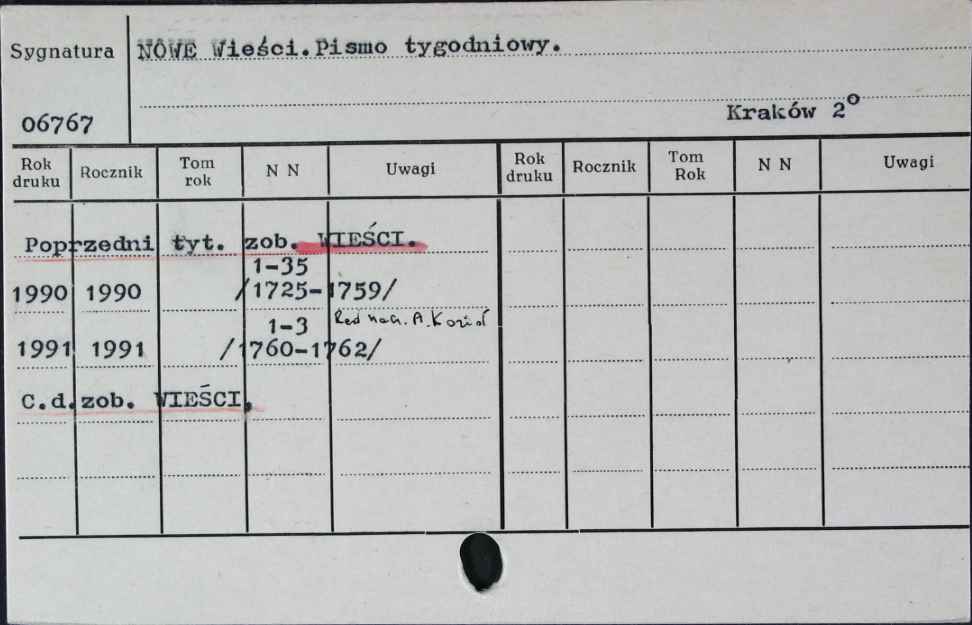 Sygnatura NOWE Wieści.Pismo tygodniowy.
06767 Kraków 2º
Rok druku Rocznik Tom rok N N Uwagi Rok druku Rocznik Tom Rok N N Uwagi
Poprzedni tyt. zob. WIEŚCI.
1-35
1990 1990 /1725-1759/
1-3 Red nacz. A. Kozioł
1991 1991 /1760-1762/
C.d.zob. WIEŚCI.